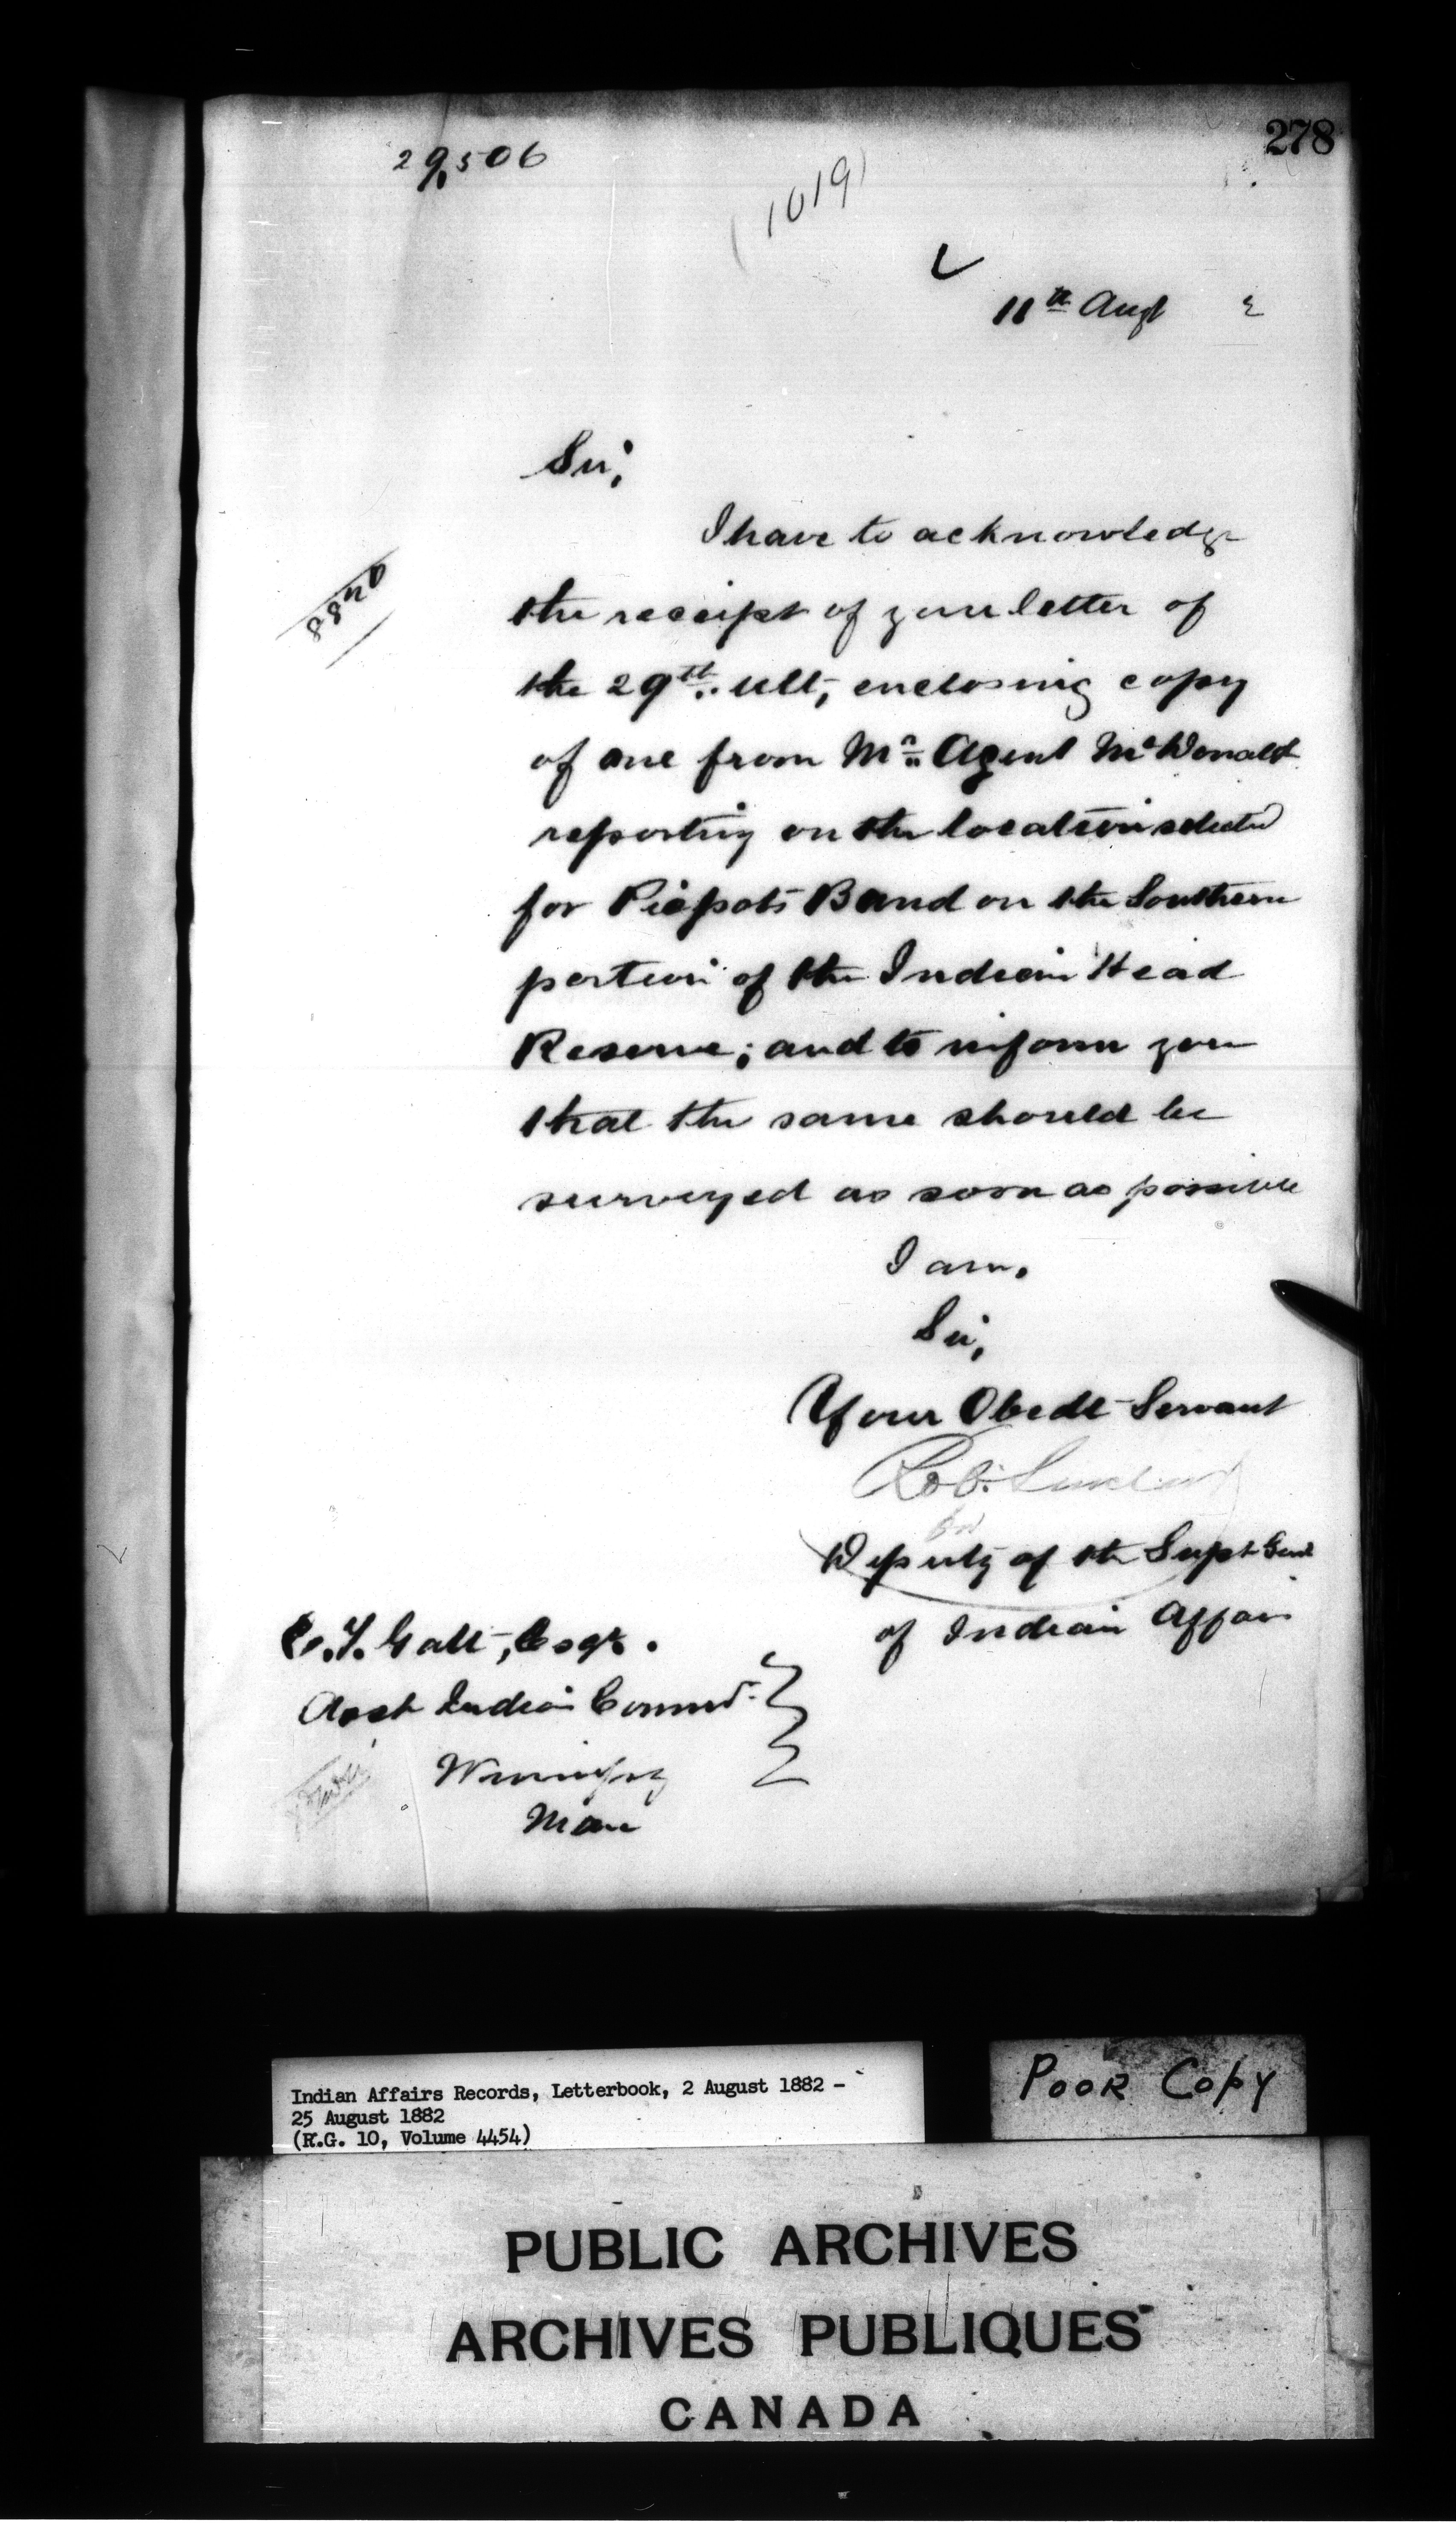 278
29,506
(1019)
11th Augt 2
Sir,
I have to acknowledge
8840
the receipt of your letter of
the 29th ult, enclosing copy
of one from Mr Agent McDonald
reporting on the location selected
for Piapots Band on the Southern
portion of the Indian Head
Reserve; and to inform you
that the same should be
surveyed as soon as possible
I am,
Sir,
Your Obedt Servant
Rob. Sinclair
for
Deputy of the Supt Genl
of Indian Affairs
E.T. Galt, Esqr.
Asst Indian Commr
Winnipeg
Man
Indian Affairs Records, Letterbook, 2 August 1882 -
25 August 1882
(R.G. 10, Volume 4454)
POOR COPY
PUBLIC ARCHIVES
ARCHIVES PUBLIQUES
CANADA